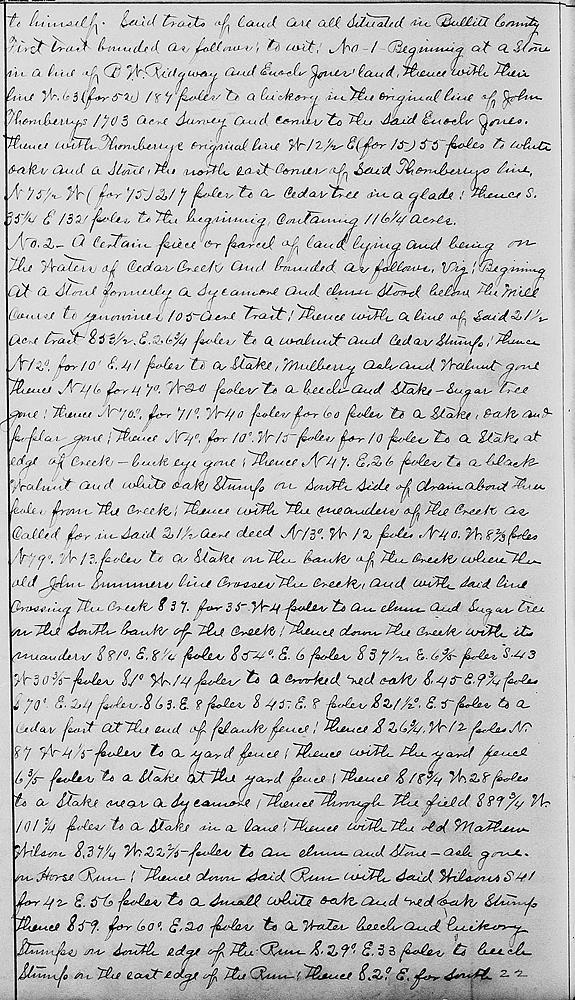 to himself. Said tracts of land are all situated in Bullitt County
First tract bounded as follows; to wit; No-1- Beginning at a Stone
in a line of D W. Ridgway and Enoch Jones' land, thence with their
line W. 63 (for 52) 187 poles to a hickory in the original line of John
Thornberrys 1703 acre Survey and corner to the said Enoch Jones.
thence with Thornberrys original line W 12½ E (for 15) 55 poles to white
oaks and a Stone, the north east corner of said Thornberrys line,
N 75½ W (for 75) 217 poles to a Cedar tree in a glade; thence S.
35¼ E 132 poles to the beginning, Containing 116¼ acres.
No. 2- A certain piece or parcel of land lying and being on
the Waters of Cedar Creek and bounded as follows, Viz; Begining
at a Stone formerly a Sycamore and elm stood below the Mill
Course to 105 acre tract; thence with a line of said 21½
acre tract S 53½. E. 26¾ poles to a walnut and Cedar Stumps; thence
N 12°. for 10° E. 41 poles to a Stake, Mulberry ash and Walnut gone
thence N 46 for 47°. W 20 poles to a beech and Stake - Sugar tree
gone; thence N 70°. for 71°. W 40 poles for 60 poles to a Stake, oak and
poplar gone; thence N 4°. for 10°. W 15 poles for 10 poles to a Stake at
edge of Creek - buck eye gone; thence N 47. E. 26 poles to a black
Walnut and white oak Stump on South side of drain about three
poles from the Creek; thence with the meanders of the Creek as
Called for in said 21½ acre deed N 13°. W 12 poles N 40. W. 8⅔ poles
N 79°. W 13. poles to a Stake on the bank of the Creek where the
old John Summers line Crosses the Creek, and with said line
Crossing the Creek S 37. for 35. W 4 poles to an elm and Sugar tree
on the South bank of the Creek; thence down the Creek with its
meanders S 81°. E. 8¼ poles S 54°. E. 6 poles S 37½. E. 6⅗ poles S. 43
W 30⅗ poles S. 1° W. 14 poles to a crooked red oak S. 45 E. 9¾ poles
S 70°. E. 24 poles. S 63. E. 8 poles S 45. E. 8 poles S 21½°. E. 5 poles to a
Cedar post at the end of plank fence; thence S 26¾. W 12 poles N.
87 W 4⅕ poles to a yard fence; thence with the yard fence
6⅗ poles to a Stake at the yard fence; thence S 18¾ W. 28 poles
to a Stake near a Sycamore; thence through the field S 89¾ W
101¾ poles to a Stake in a lane; thence with the old Mathew
Wilson S. 37¼ W. 22⅗ poles to an elm and Stone - ash gone.
on Horse Run; thence down said Run with said Wilsons S 41
for 42 E. 56 poles to a small white oak and red oak Stump
thence S 59. for 60°. E. 20 poles to a Water beech and hickory
Stumps on South edge of the Run S. 29°. E. 33 poles to beech
Stump on the east edge of the Run; thence S. 2°. E. for South 22